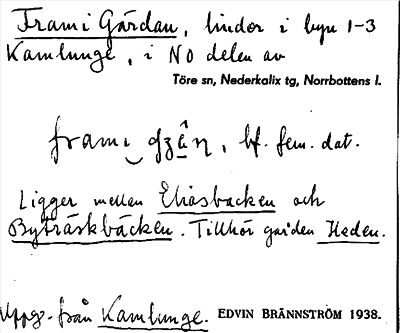 Fram i Gärdan, lindor i byn 1-3
Kamlunge, i NO delen av
Töre sn, Nederkalix tg, Norrbottens l.
bf. fem. dat.
Ligger mellan Eliasbacken och
Byträskbäcken. Tillhör gården Heden.
Uppg. från Kamlunge. EDVIN BRÄNNSTRÖM 1938.